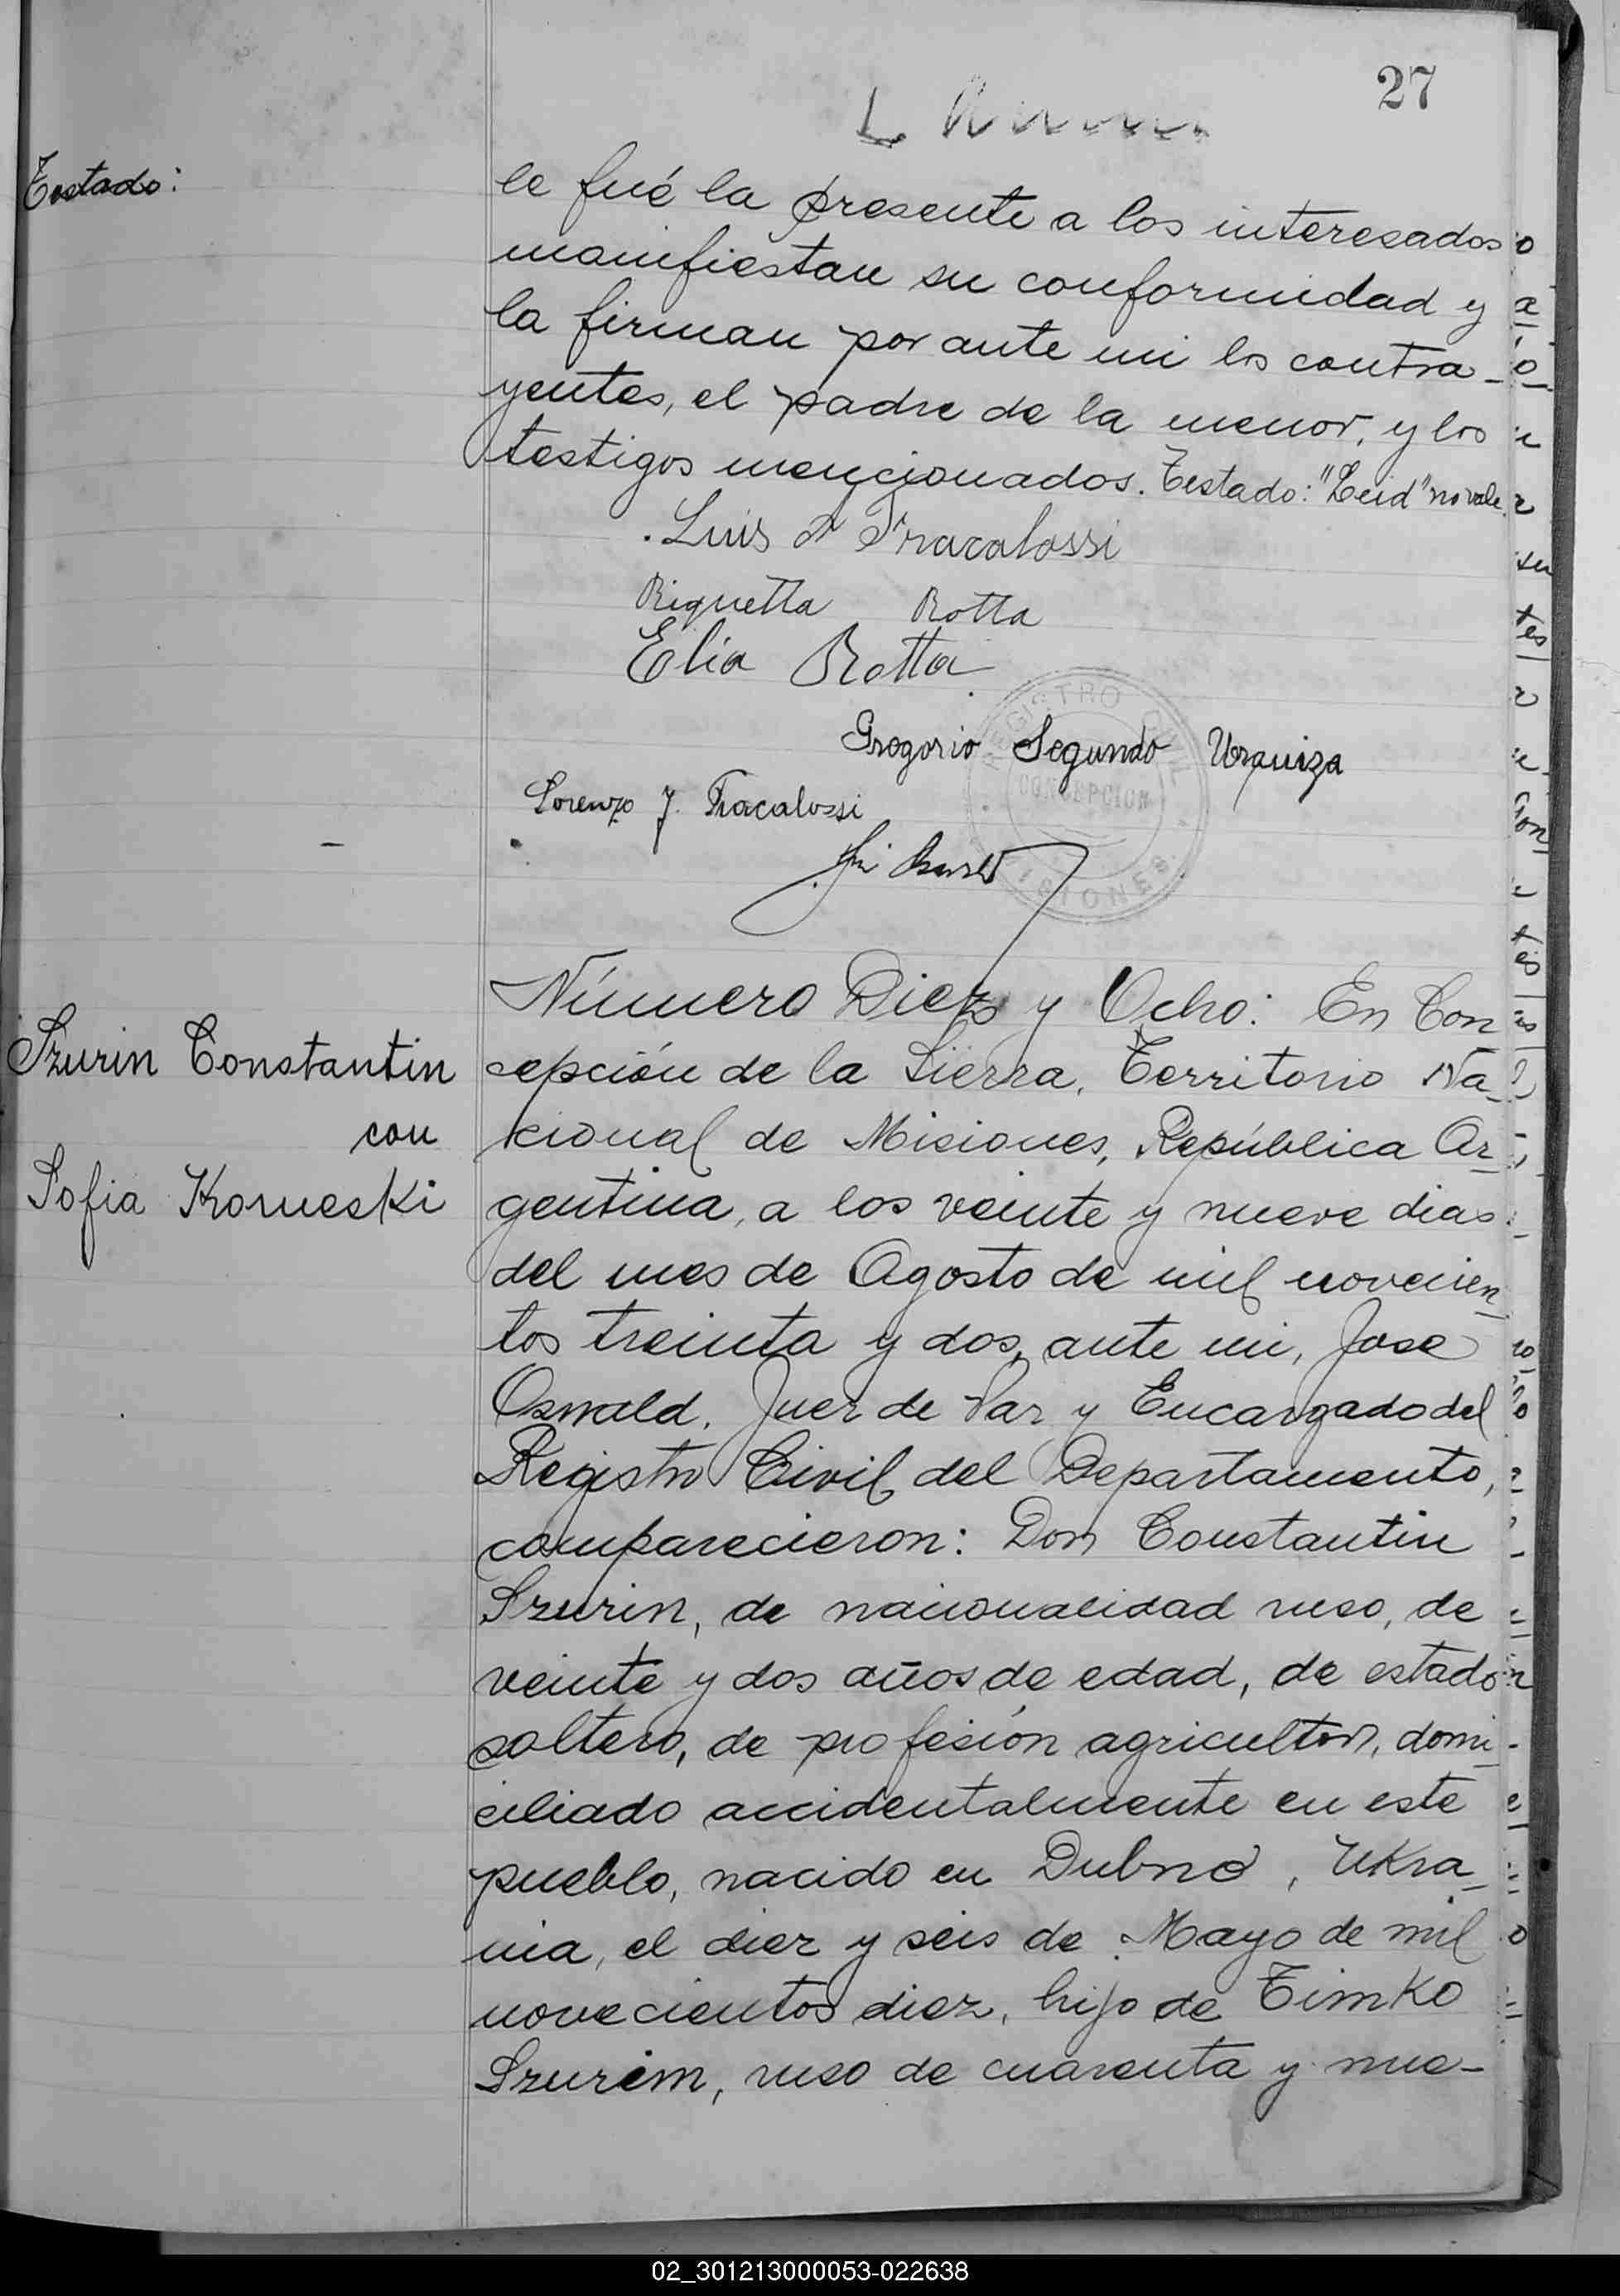 27
Testado:
le fué la presente a los interesados
manifiestan su conformidad y
la firman por ante mi los contra-
yentes, el padre de la menor, y los
testigos mencionados. Testado: "Leid" no vale.
Luis A Fracalossi
Riquetta Rotta
Elia Rotta
Gregorio Segundo Urquiza
REGISTRO CIVIL
CONCEPCION
MISIONES
Lorenzo J. Fracalossi
Szurin Constantin
con
Sofia Korneski
Número Diez y Ocho: En Con
cepción de la Sierra, Territorio Na-
cional de Misiones, República Ar-
gentina, a los veinte y nueve dias
del mes de Agosto de mil novecien
tos treinta y dos, ante mi, Jose
Oswald, Juez de Paz y Encargado del
Registro Civil del Departamento,
comparecieron: Don Constantin
Szurin, de nacionalidad ruso, de
veinte y dos años de edad, de estado
soltero, de profesión agricultor, domi-
ciliado accidentalmente en este
pueblo, nacido en Dubno, Ukra-
nia, el diez y seis de Mayo de mil
novecientos diez, hijo de Timko
Szurim, ruso de cuarenta y nue-
02_301213000053-022638